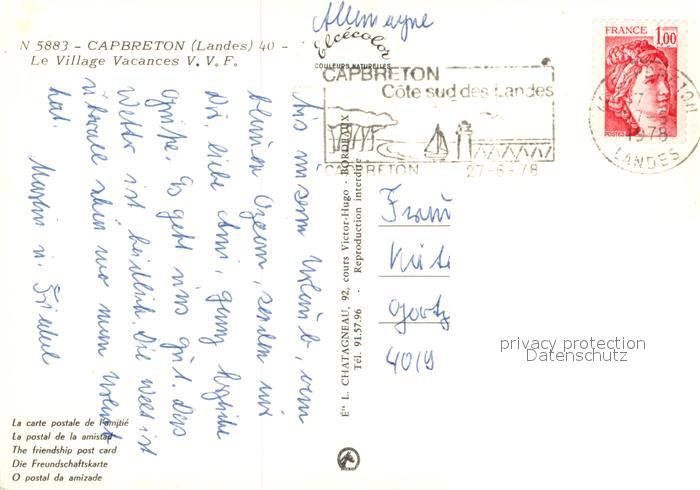 Allemagne
N 5883 - CAPBRETON (Landes) 40 -
Le Village Vacances V. V. F.
Elcécolor
COULEURS NATURELLES
CAPBRETON
Côte sud des Landes
CAPBRETON
27-6-78
FRANCE
1,00
POSTES
1978
LANDES
Aus unserm Urlaub, vom
blauen Ozean, senden wir
Dir, liebe Ami, ganz herzliche
Grüße. Es geht uns gut. Das
Wetter ist herrlich. Die Welt ist
überall schön wo man Urlaub
hat.
u. Friedel
Éts L. CHATAGNEAU, 92, cours Victor-Hugo - BORDEAUX
Tél. 91.57.96 - Reproduction interdite
Frau
Käte
Goetz
4019
privacy protection
Datenschutz
La carte postale de l'amitié
La postal de la amistad
The friendship post card
Die Freundschaftskarte
O postal da amizade